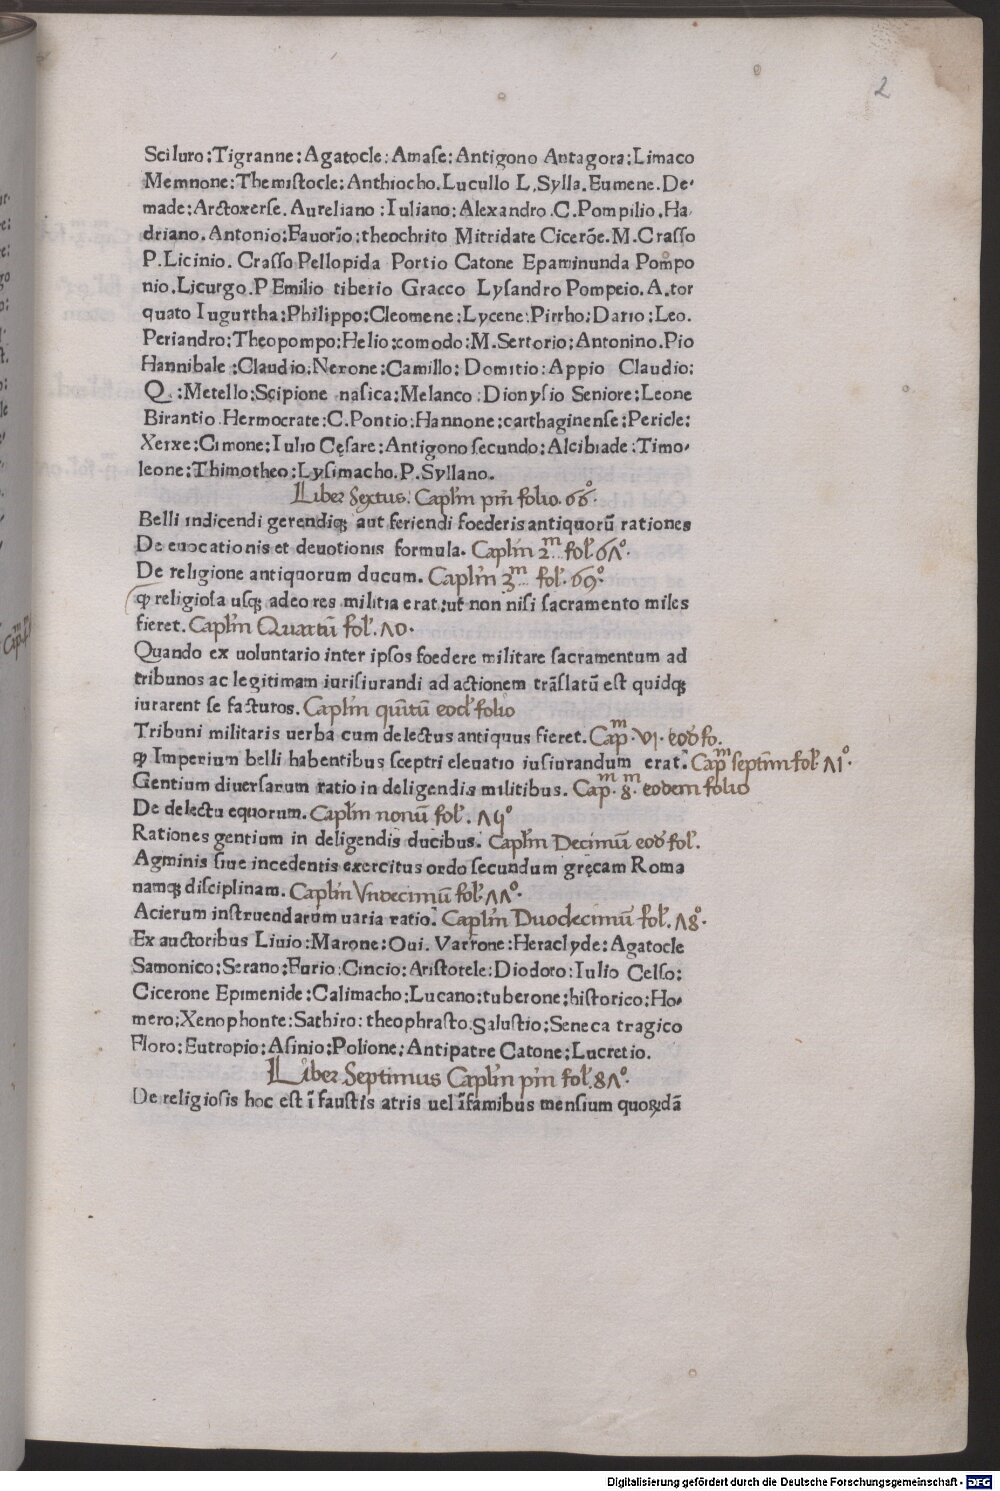 2
Sciluro:Tigranne:Agatocle:Amaſe:Antigono Antagora:Limaco
Memnone:Themiſtocle:Anthiocho.Lucullo L.Sylla.Eumene.De-
made:Arctoxerſe.Aureliano:Iuliano:Alexandro.C.Pompilio.Ha-
driano.Antonio:Fauorīo:theochrito Mitridate Cicerōe.M.Craſſo
P.Licinio. Craſſo Pellopida Portio Catone Epaminunda Pompo
nio.Licurgo.P Emilio tiberio Gracco Lyſandro Pompeio.A.tor
quato Iugurtha:Philippo:Cleomene:Lycene:Pirrho:Dario:Leo.
Periandro:Theopompo:Helio:comodo:M.Sertorio:Antonino.Pio
Hannibale:Claudio.Nerone:Camillo: Domitio:Appio Claudio:
Q.:Metello:Scipione naſica:Melanco:Dionyſio Seniore:Leone
Birantio Hermocrate:C.Pontio:Hannone:carthaginenſe:Pericle:
Xerxe:Cimone:Iulio Cęſare:Antigono ſecundo:Alcibiade:Timo-
leone:Thimotheo:Lyſimacho.P.Syllano.
Liber Sextus. Caplm̄ pm̄ folio.66°.
Belli indicendi gerendiqꝫ aut feriendi foederis antiquorū rationes
De euocationis et deuotionis formula. Caplm̄ 2m fol.6Λ°.
De religione antiquorum ducum. Caplm̄ 3m fol.69°.
ꝙ religioſa uſqꝫ adeo res militia erat:ut non niſi ſacramento miles
fieret. Caplm̄ Quartū fol.Λ0.
Quando ex uoluntario inter ipſos foedere militare ſacramentum ad
tribunos ac legitimam iuriſiurandi ad actionem trāſlatū eſt quidqꝫ
iurarent ſe facturos. Caplm̄ quītū eod folio
Tribuni militaris uerba cum delectus antiquus fieret. Capm.VI.eod fo.
ꝙ Imperium belli habentibus ſceptri eleuatio iuſiurandum erat. Capm septim̄ fol.Λ1°.
Gentium diuerſarum ratio in deligendis militibus. Capm.8m.eodem folio
De delectu equorum. Caplm̄ nonū fol.
Rationes gentium in deligendis ducibus. Caplm̄ Decimū eod fol.
Agminis ſiue incedentis exercitus ordo ſecundum gręcam Roma
namqꝫ diſciplinam. Caplm̄ Vndecimū fol.ΛΛ°.
Acierum inſtruendarum uaria ratio. Caplm̄ Duodecimū fol.Λ8°.
Ex auctoribus Liuio:Marone:Oui. Varrone:Heraclyde:Agatocle
Samonico:Serano:Furio:Cincio:Ariſtotele:Diodoro:Iulio Celſo:
Cicerone Epimenide:Calimacho:Lucano:tuberone:hiſtorico:Ho-
mero:Xenophonte:Sathiro:theophraſto.Saluſtio:Seneca tragico
Floro:Eutropio:Aſinio:Polione:Antipatre Catone:Lucretio.
Liber Septimus Caplm̄ pm̄ fol.8Λ°.
De religioſis hoc eſt ī fauſtis atris uel īfamibus menſium quorꝫdā
Digitalisierung gefördert durch die Deutsche Forschungsgemeinschaft - DFG